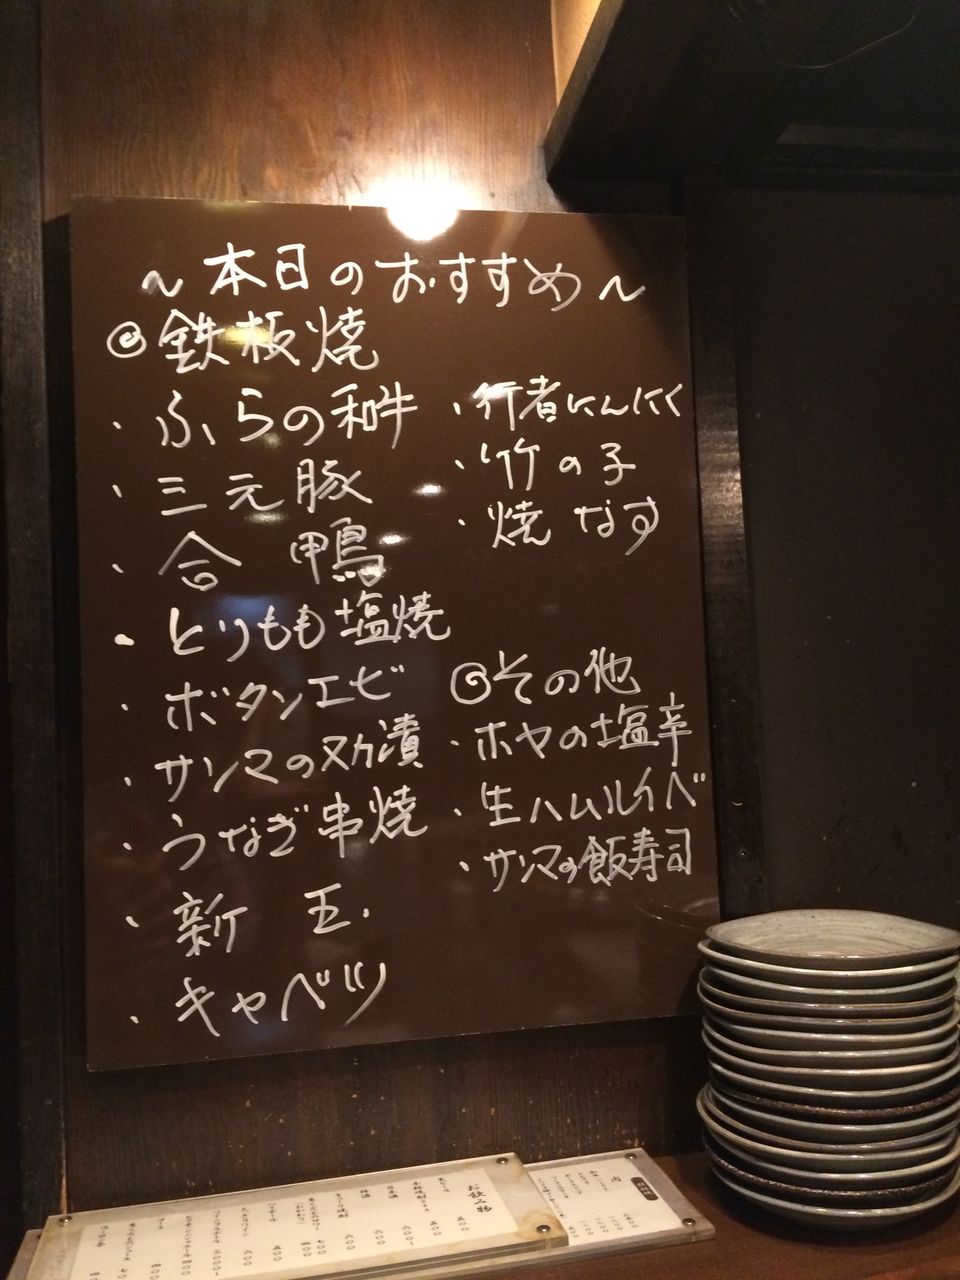 ～本日のおすすめ～
◎鉄板焼
・ふらの和牛
・三元豚
・合鴨
・とりもも塩焼
・ボタンエビ
・サンマのヌカ漬
・うなぎ串焼
・新玉
・キャベツ
・行者にんにく
・竹の子
・焼なす
◎その他
・ホヤの塩辛
・生ハムルイベ
・サンマの飯寿司
お飲み物
肉